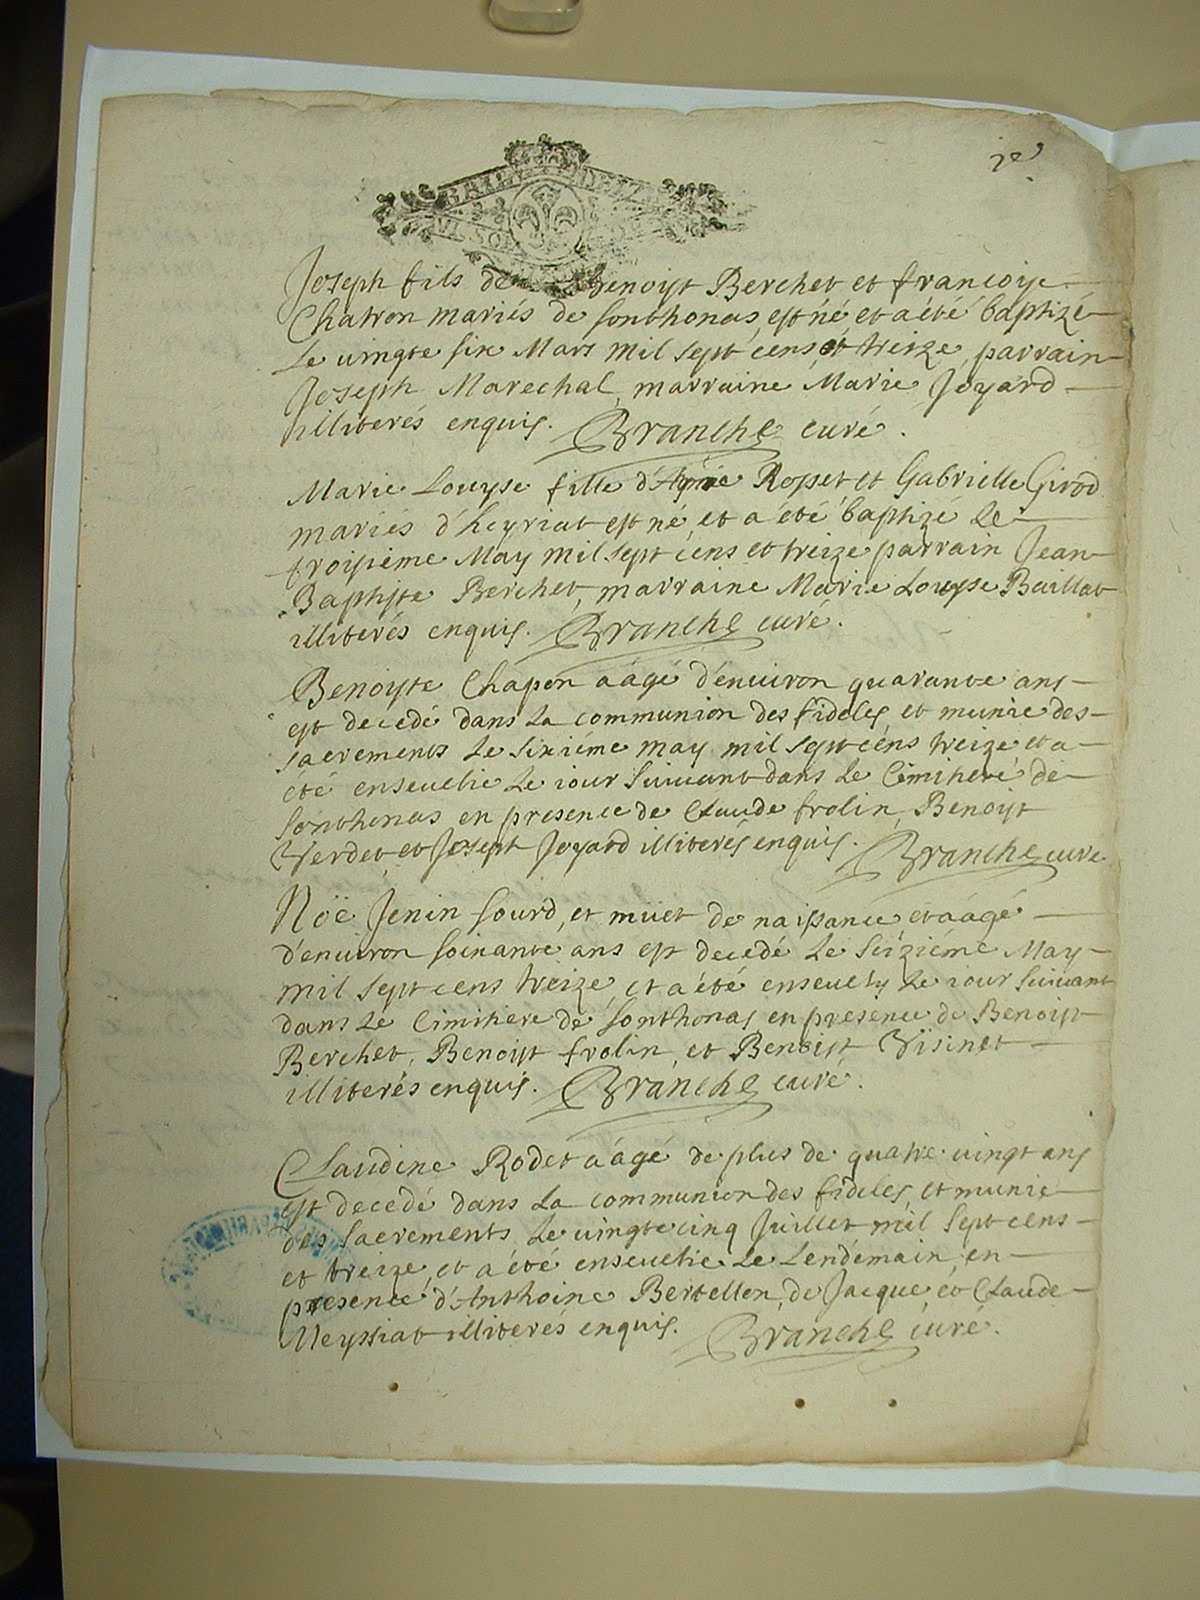 Joseph fils de Benoist Berchet et francoise
Chatron mariés de sonthonas est né et a été baptizé
Le vingte six Mars mil sept cens et treize, parrain
Joseph Marechal, marraine Marie Joyard
illiterés enquis. Branche curé.
Marie Louyse fille d' Rosset et Gabrielle Girod
mariés d'heyriat est né, et a été baptizé Le
troisième May mil sept cens et treize parrain Jean
Baptiste Berchet, marraine Marie Louyse Baillat
illiterés enquis. Branche curé.
Benoiste Chapon aâgé d'enuiron quarante ans
est decedé dans La communion des fideles, et munie des
sacrements Le sixiéme may mil sept cens treize et a
été enseuelie Le iour suiuant dans Le Cimitieré de
sonthonas en presence de Claude frolin, Benoist
Verdet et Joseph Joyard illiterés enquis. Branche curé
Nöe Jenin sourd, et müet de naissance et aâgé
d'enuiron soixante ans est decedé Le seiziéme May
mil sept cens treize, et a été enseuely Le iour suiuant
dans Le Cimitiere de sonthonas en presence de Benoist
Berchet, Benoist frolin, et Benoist Visinet
illiterés enquis. Branche curé.
Claudine Rodet aâgé de plus de quatre vingt ans
est decedé dans La communion des fideles, et munie
des sacrements Le vingte cinq Juillet mil sept cens
et treize, et a été enseuelie Le Lendemain, en
presence d'Anthoine Bertellon, de Jacque, et Claude
Meyssiat illiterés enquis. Branche curé.